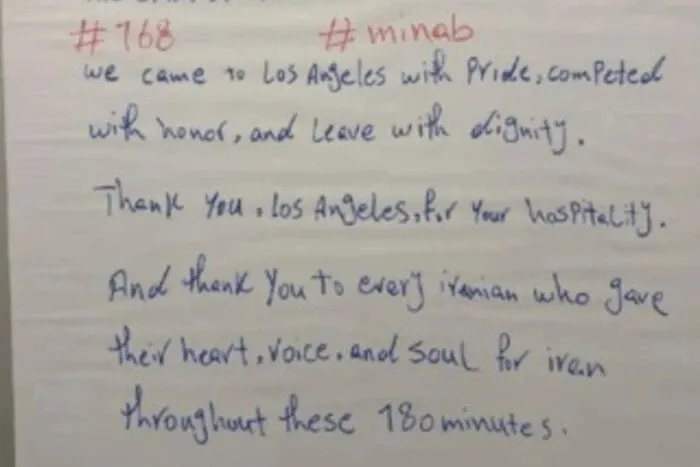 #168 #minab
we came to Los Angeles with Pride, competed
with honor, and Leave with dignity.
Thank You, Los Angeles, for Your hospitality.
And thank You to every iranian who gave
their heart, voice, and soul for iran
throughout these 180 minutes.